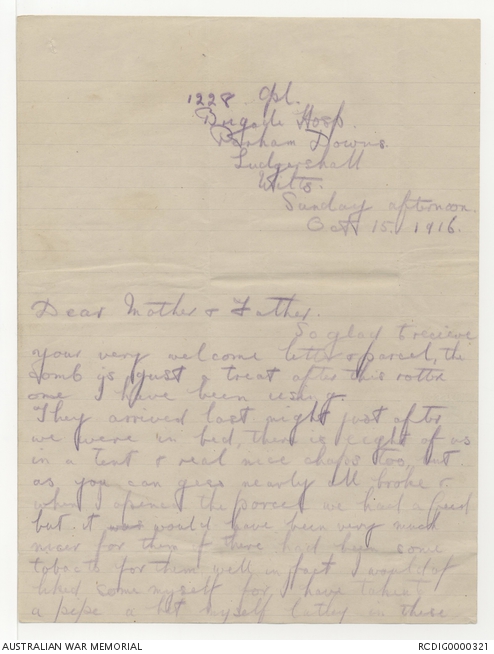 1228 Cpl.
Brigade Hosp.
Parham Downs
Ludgershall
Wilts.
Sunday afternoon.
Oct 15. 1916.
Dear Mother & Father.
So glad to recieve
your very welcome letter & parcel, the
comb is just a treat after this
one I have been using.
They arrived last night just after
we were in bed, there is eight of us
in a tent & real nice chaps too, but
as you can gess nearly all broke &
when I opened the parcel we had a feed
but it was would have been very much
nicer for them if there had been some
tobacco for them, well in fact I would of
liked some myself for I have taken
a pipe a bit myself lately in these
AUSTRALIAN WAR MEMORIAL
RCDIG0000321